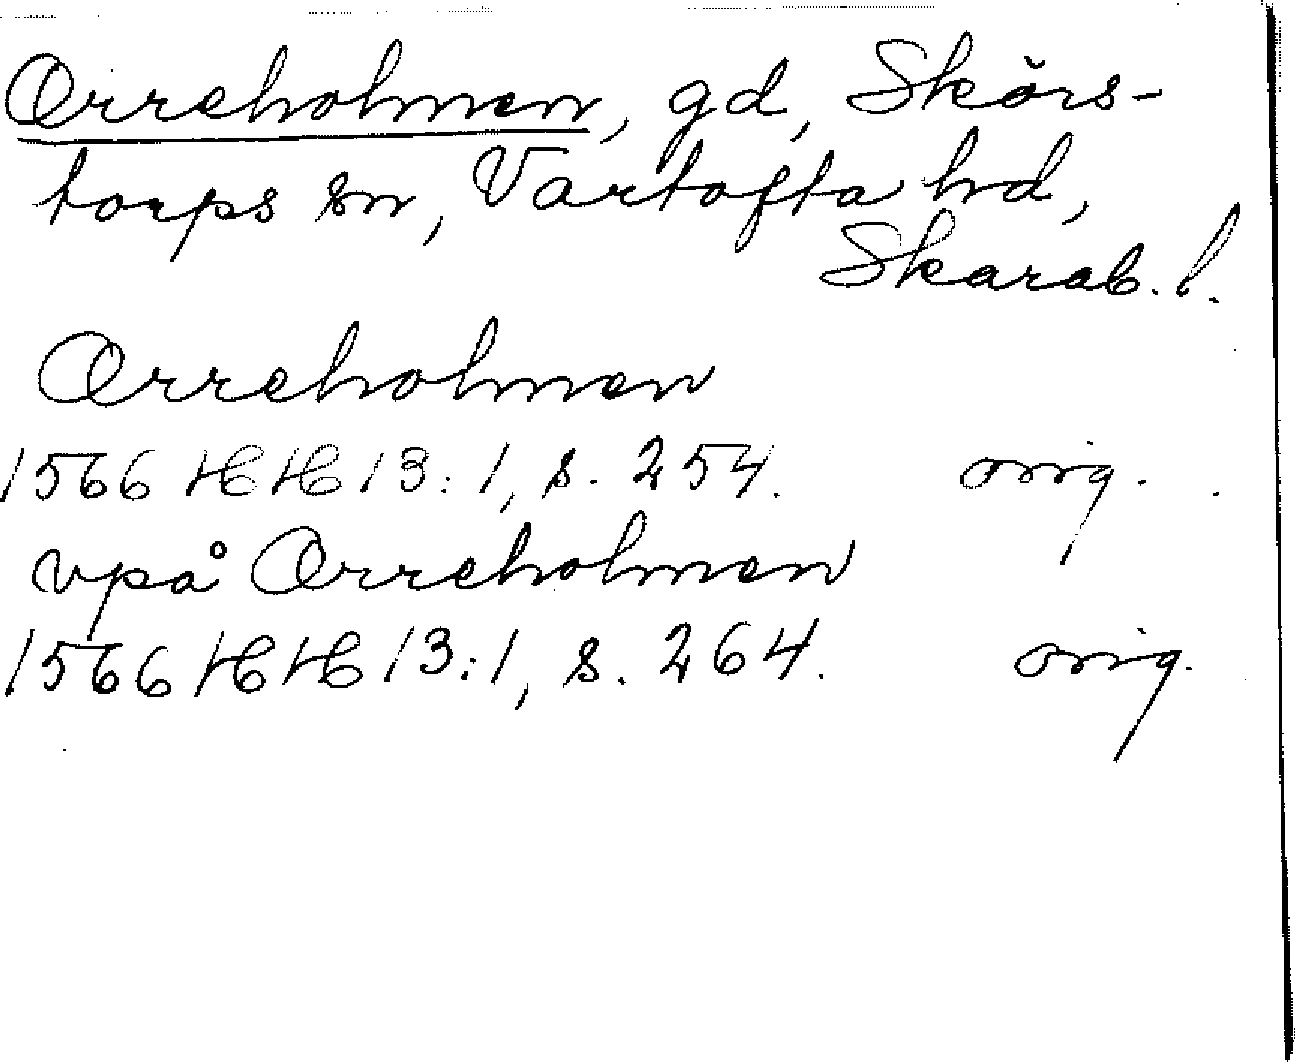 Orreholmen, gd, Skörs-
torps sn, Vartofta hd,
Skarab. l.
Orreholmen
1566 HH 13:1, s. 254. orig.
vpå Orreholmen
1566 HH 13:1, s. 264. orig.